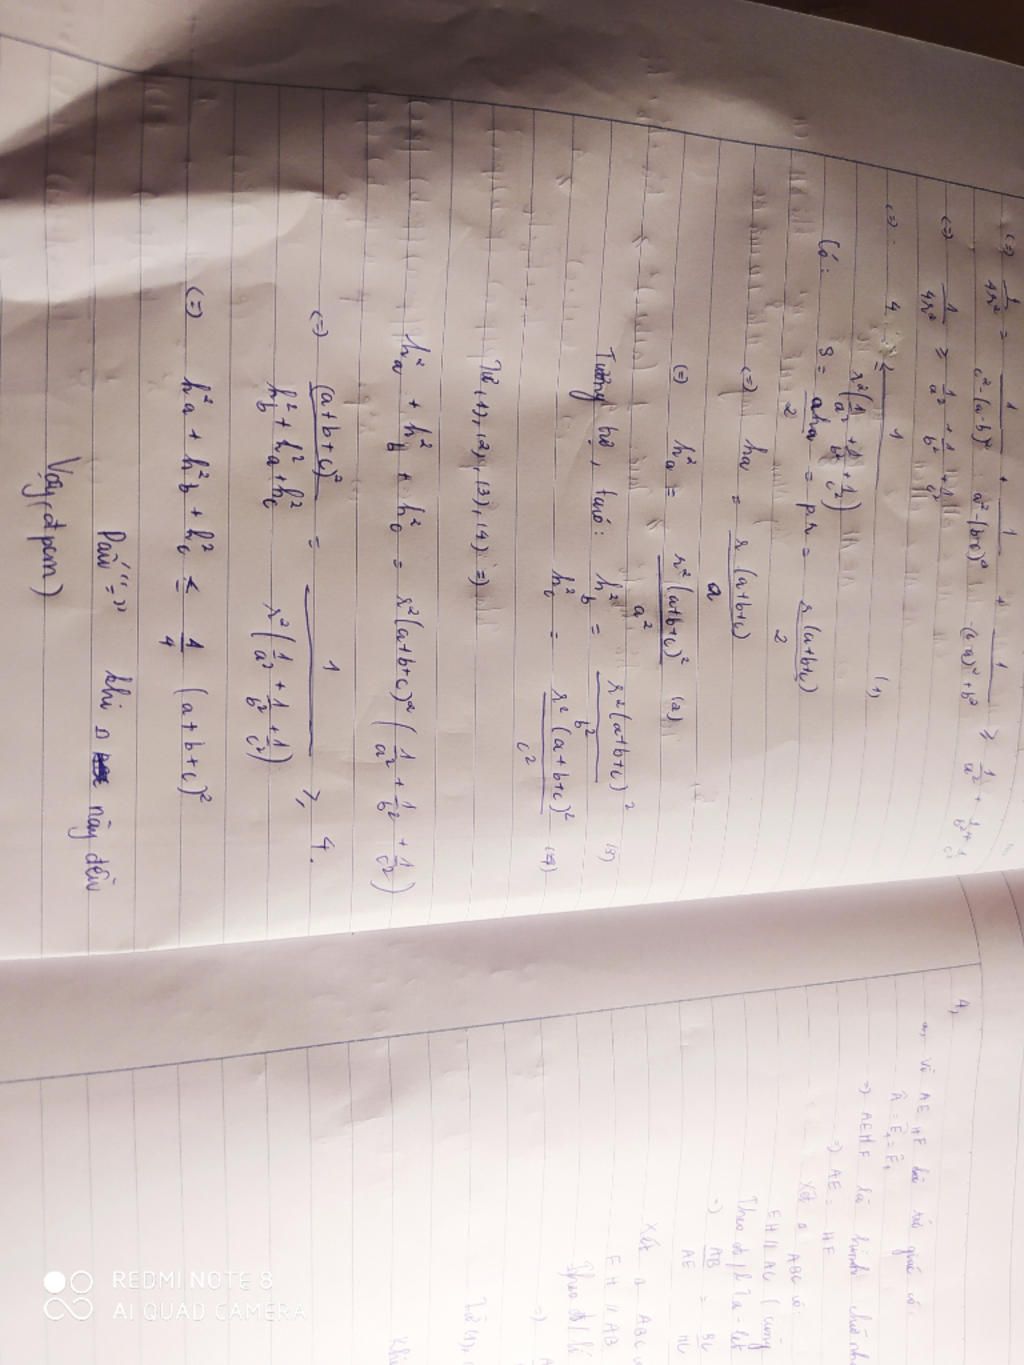 (=) 1/4r² = 1/c²-(a-b)² + 1/a²-(b-c)² + 1/-(c-a)²+b² ≥ 1/a² + 1/b² + 1/c²
(=) 1/4r² ≥ 1/a² + 1/b² + 1/c²
(=) 4 ≤ 1/r²(1/a² + 1/b² + 1/c²) (1)
Có: S = aha/2 = pr = r(a+b+c)/2
(=) ha = r(a+b+c)/a
(=) h²a = r²(a+b+c)²/a² (2)
Tương tự, ta có: h²b = r²(a+b+c)²/b² (3)
h²c = r²(a+b+c)²/c² (4)
Từ (1), (2), (3), (4) =)
h²a + h²b + h²c = r²(a+b+c)² (1/a² + 1/b² + 1/c²)
(=) (a+b+c)²/h²b + h²a + h²c = 1/r²(1/a² + 1/b² + 1/c²) ≥ 4.
(=) h²a + h²b + h²c ≤ 1/4 (a+b+c)²
Dấu "=" khi Δ này đều
Vậy (đpcm)
4,
a, Vì AEHF có
Â = Ê₁ = F̂₁
=) AEHF là hình chữ nh
=) AE = HF
Xét Δ ABC có:
EH // AC (cùng
Theo đ/lí Ta-lét
=) AB/AE = BC/HC
Xét Δ ABC
EH // AB
Theo đ/lí
=) A
Từ (1),
Khi
REDMI NOTE 8
AI QUAD CAMERA